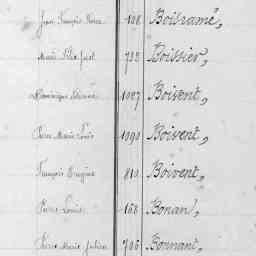 Jean François Marie 108 Boisramé,
Marie Félix Juat 733 Boissier,
Dominique Etienne 1087 Boivent,
Pierre Marie Louis 1090 Boivent,
François Eugène 810 Boivent,
Pierre Louis 168 Bonan,
Pierre Marie Julien 706 Bonnant,